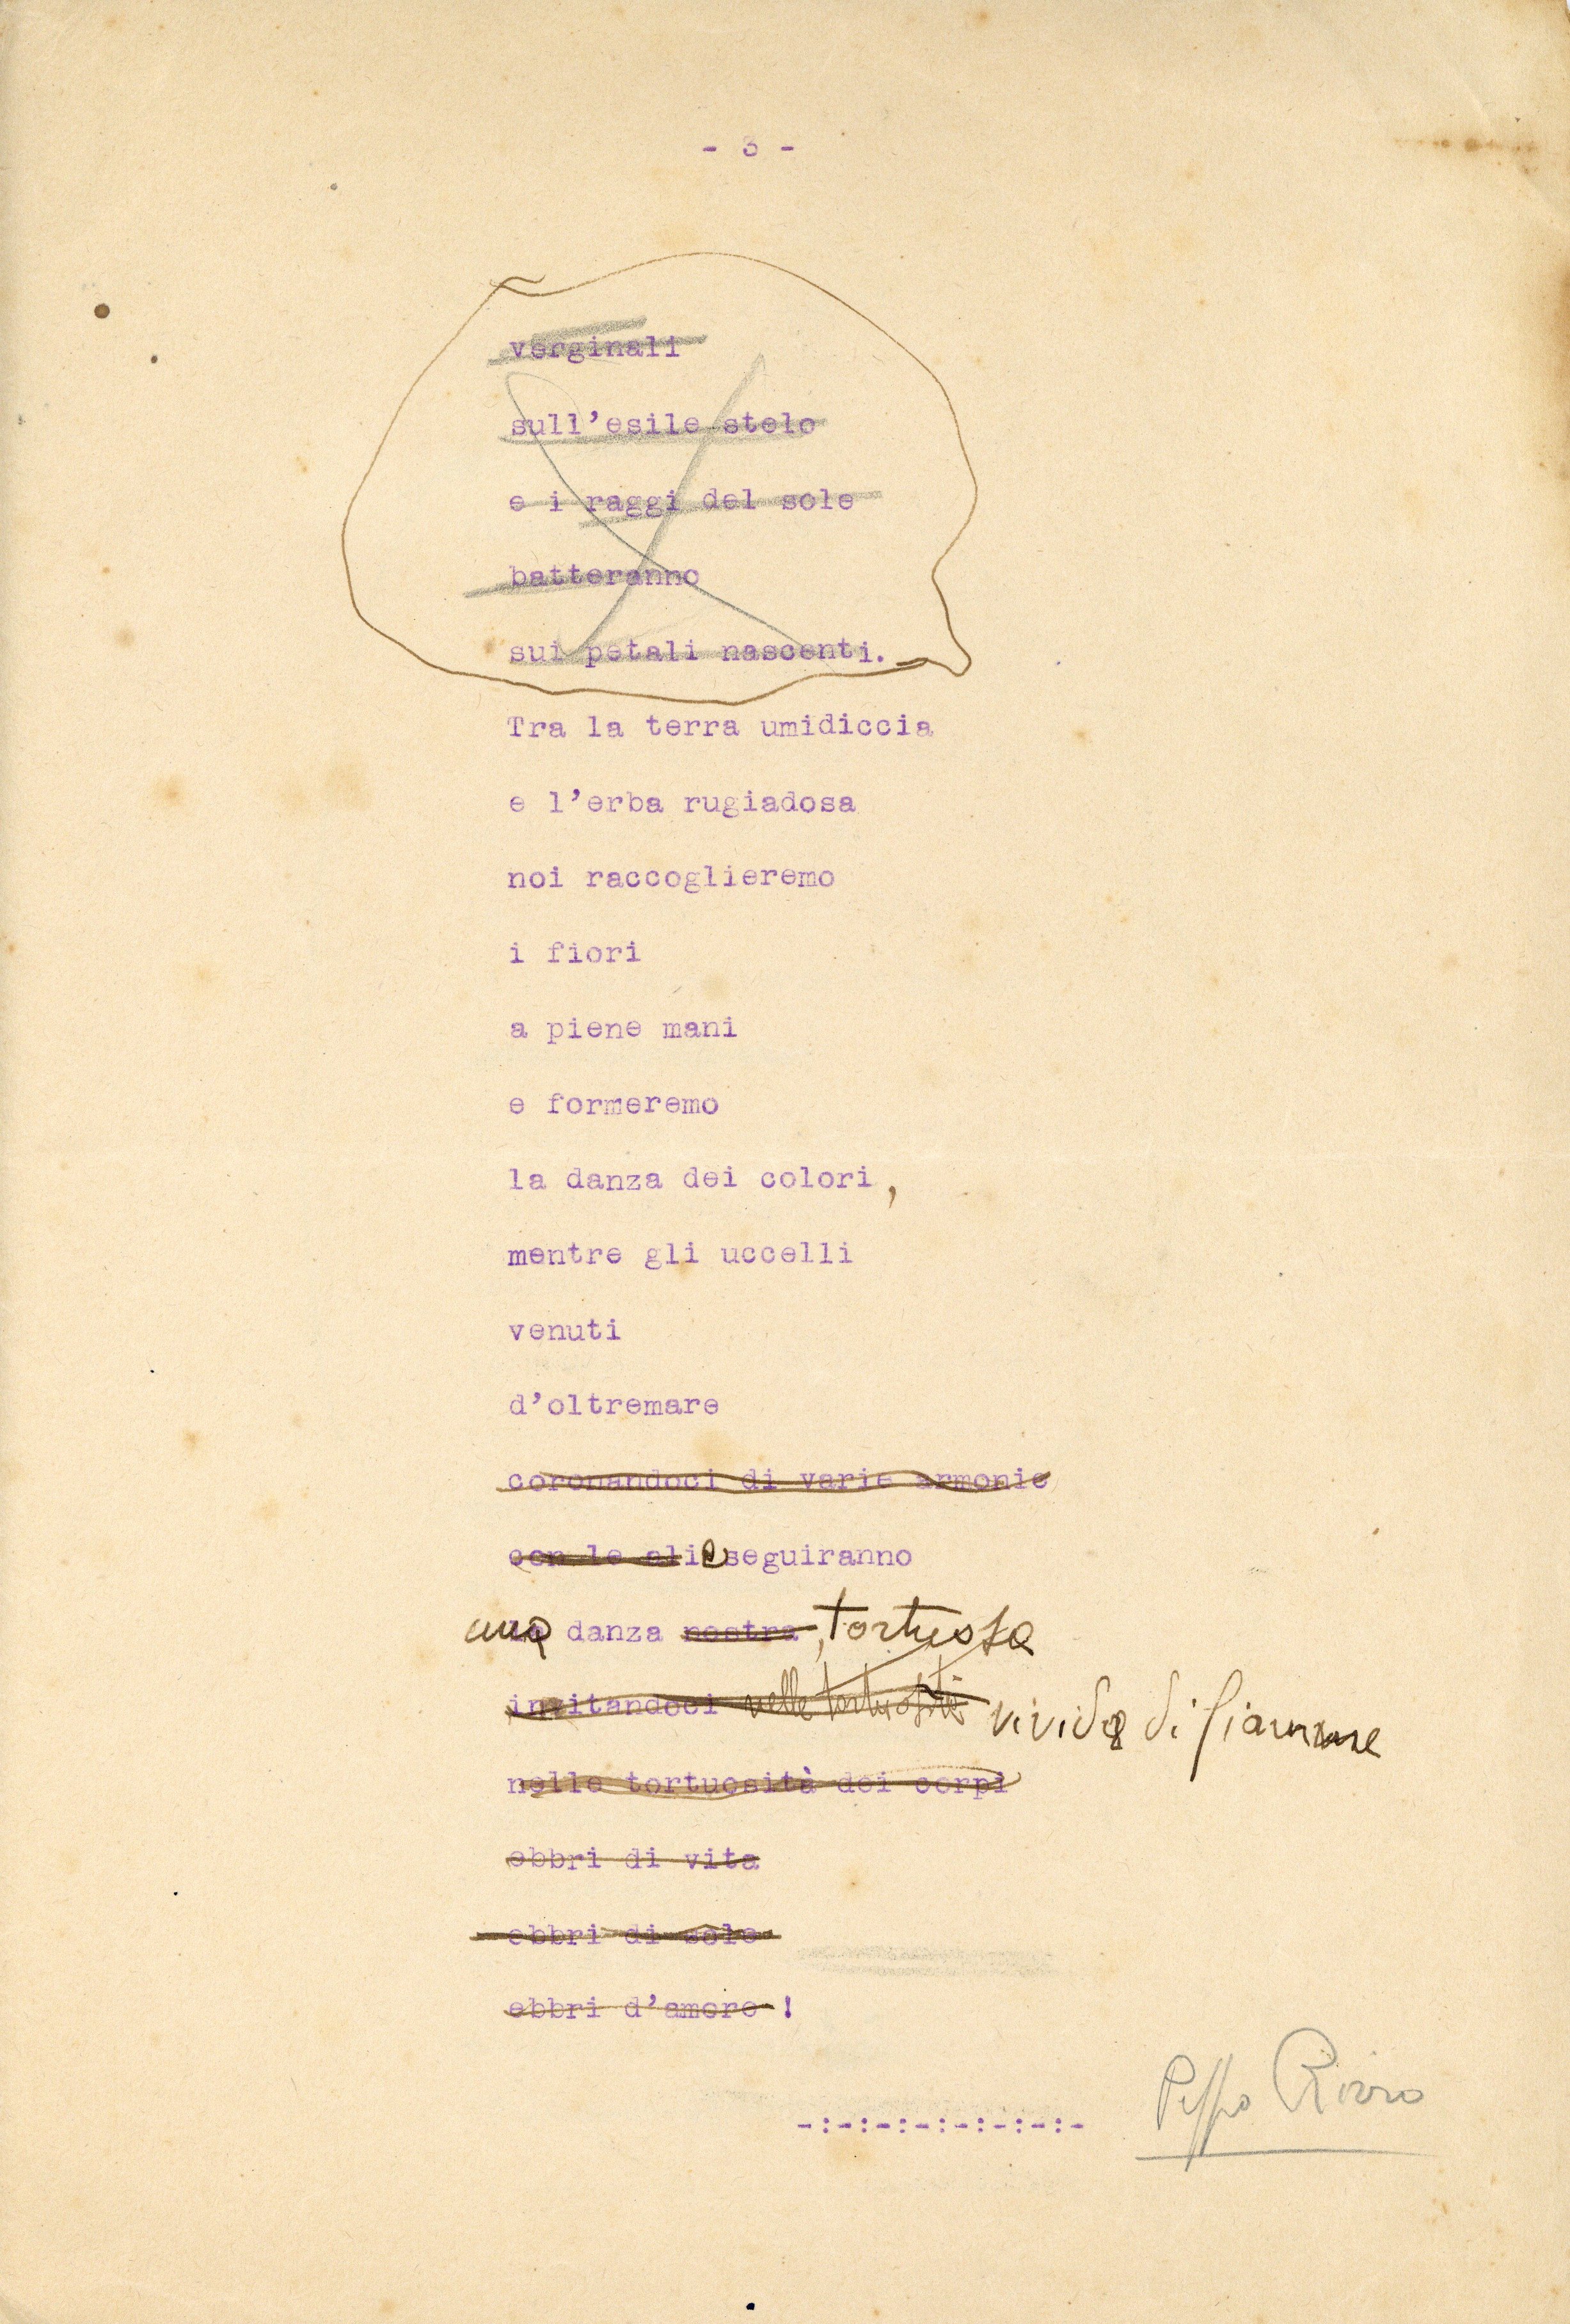 - 3 -
verginali
sull'esile stelo
e i raggi del sole
batteranno
sui petali nascenti.
Tra la terra umidiccia
e l'erba rugiadosa
noi raccoglieremo
i fiori
a piene mani
e formeremo
la danza dei colori,
mentre gli uccelli
venuti
d'oltremare
coronandoci di varie armonie
con le ali e seguiranno
una danza nostra, tortuosa
invitandoci nelle tortuosità vivida di fiamme
nelle tortuosità dei corpi
ebbri di vita
ebbri di sole
ebbri d'amore !
-:-:-:-:-:-:-:-
Peppo Rizzo